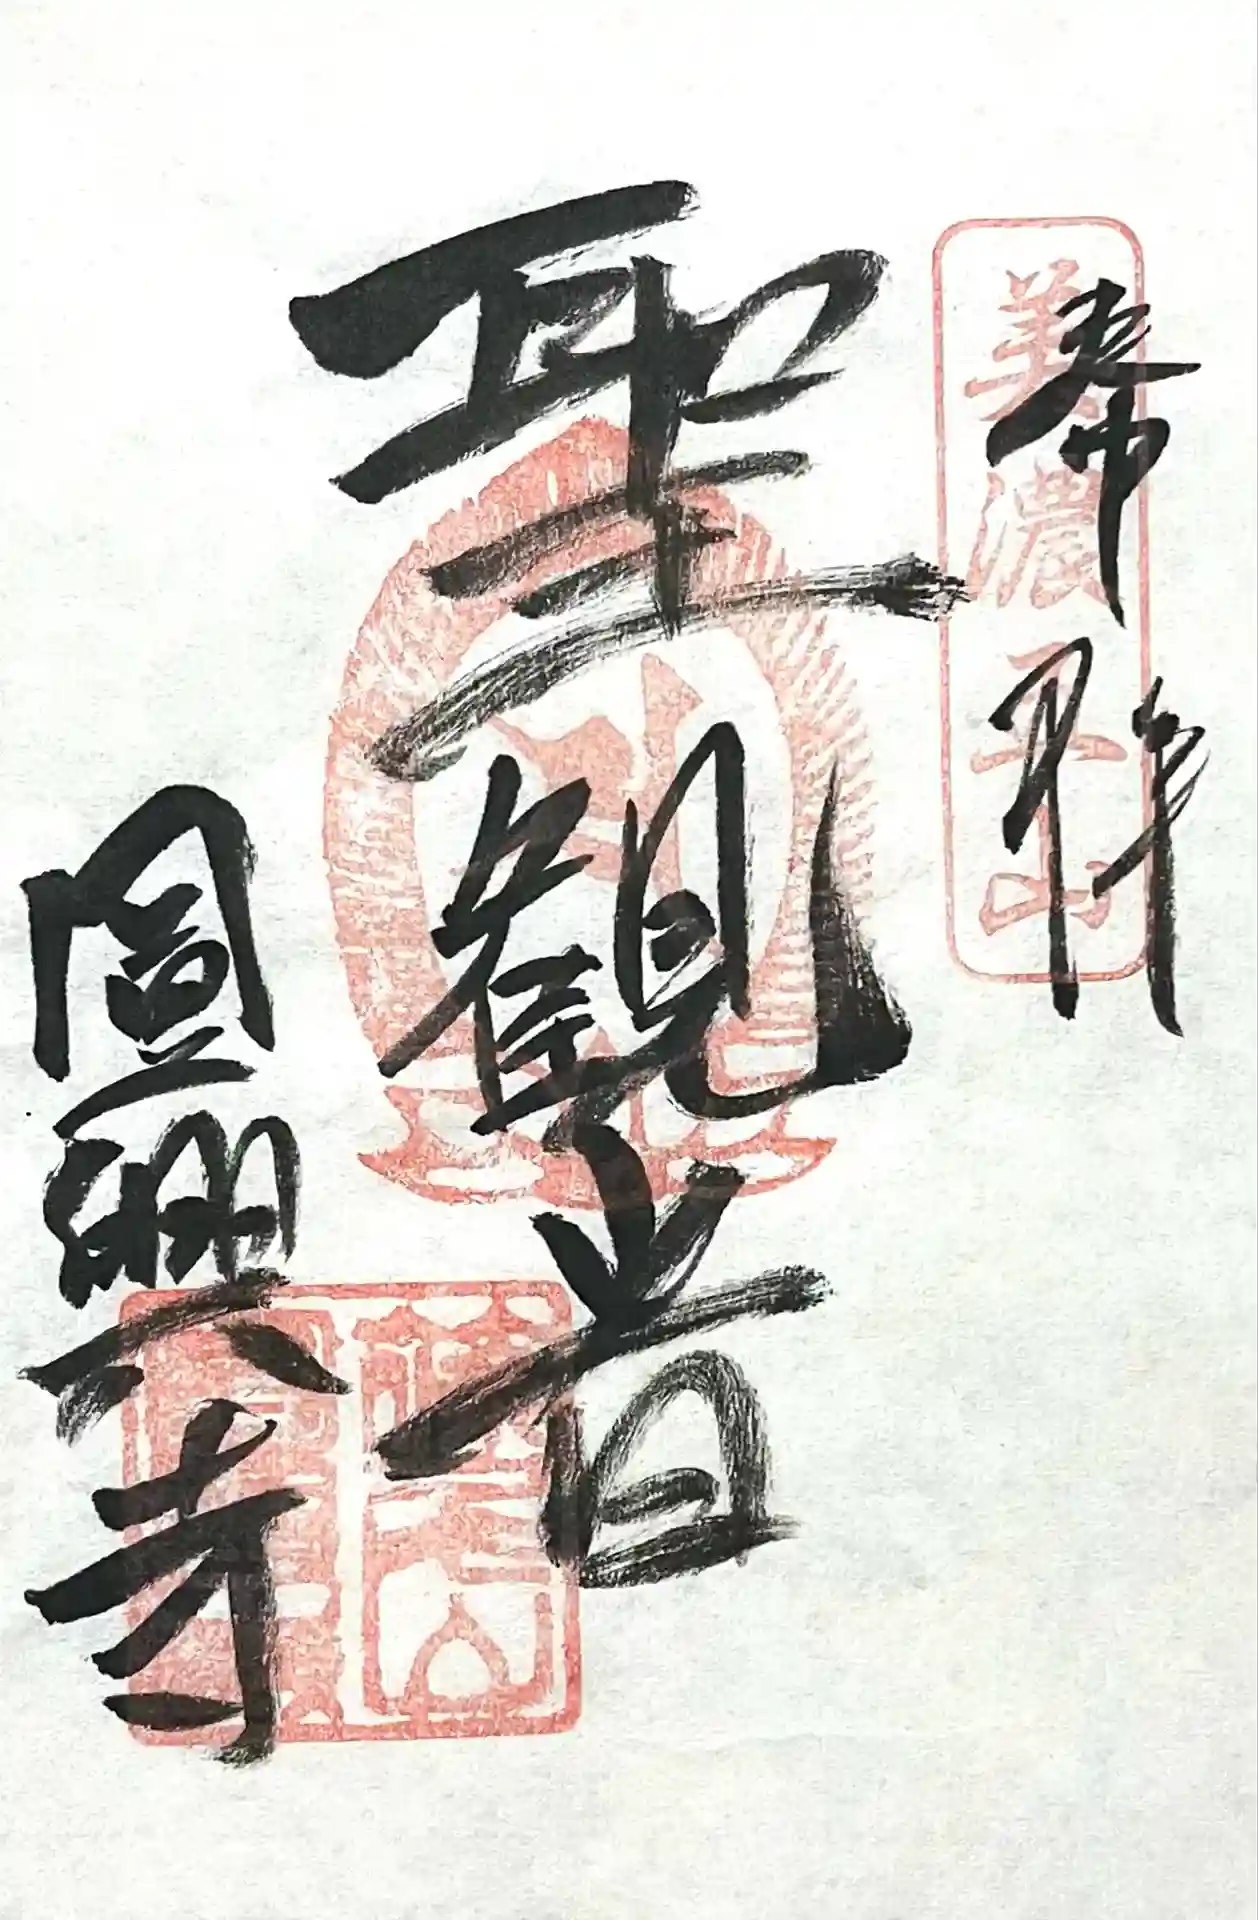 奉拝
美濃五山
聖観音
圓興寺